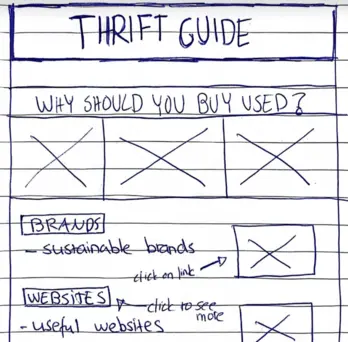 THRIFT GUIDE
WHY SHOULD YOU BUY USED?
BRANDS
- sustainable brands
click on link
WEBSITES
click to see
more
- useful websites